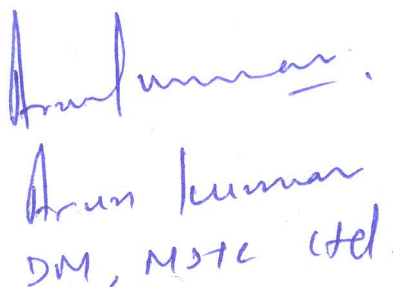 Arun Kumar.
Arun Kumar
DM, MSTC Ltd.